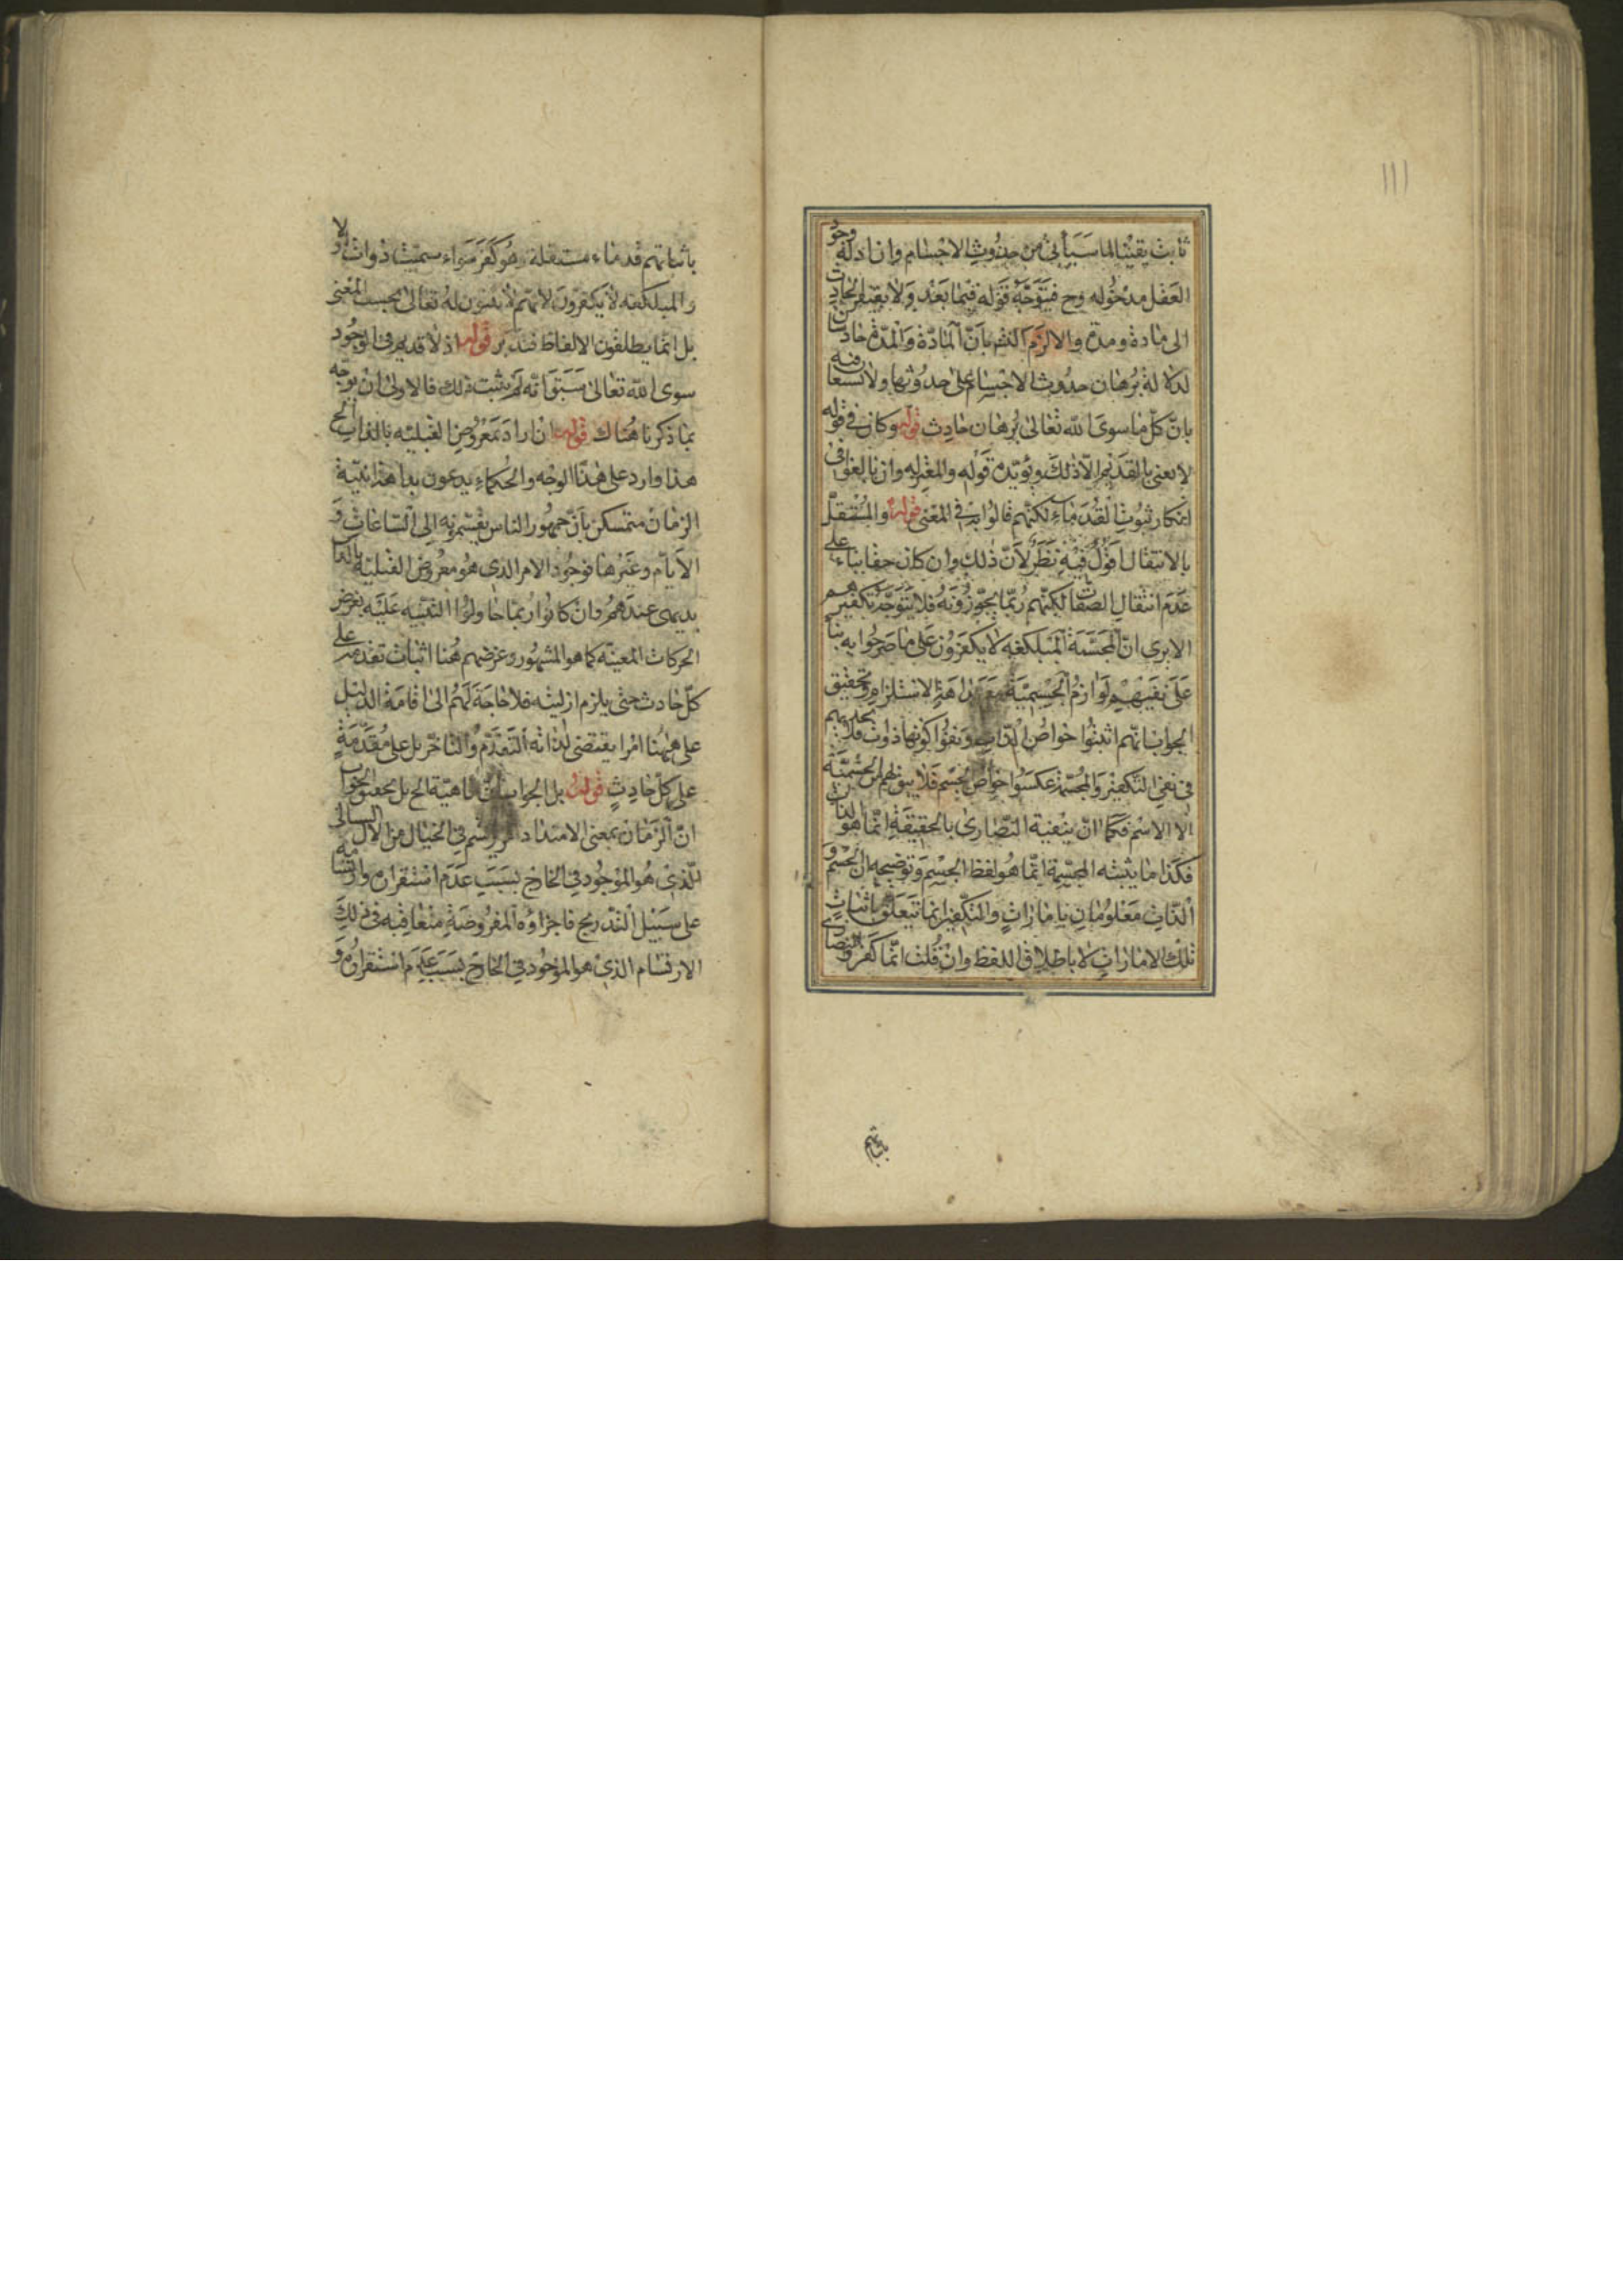 ١١١
ثابت يقينا لما سيأتى من حدوث الاجسام وان ادلة وجو
العقل مدخوله وح فيتوجه قوله فيما بعد ولا يفتقر الحادث
الى مادة ومدة والا لزم التس بان المادة والمدة حادثتان
لدلالة برهان حدوث الاجسام على حدوثها ولا تسعا فيه
بان كل ما سوى الله تعالى برهان حادث قوله وكان في قوله
لا يعنى بالقديم الا ذلك ويؤيده قوله والمعتزله وان بالغوا فى
انكار ثبوت القدماء لكنهم قالوا به فى المعنى قوله والمستقل
بالانتقال اقول فيه نظر لان ذلك وان كان حقا بناء على
عدم انتقال الصفات لكنهم ربما يجوزونه فلا يتوجه تكفيرهم
الا يرى ان المجسمة المبلكفه لا يكفرون على ما صرحوا به بنا
على نفيهم لوازم الجسمية مع هذا الاستلزام وتحقيق
الجواب انهم اثبتوا خواص الذات ونفوا كونها ذوات فلا يجديهم
فى نفى التكفير والمجسمة عكسوا خواص الجسم فلا يبق لهم من الجسمية
الا الاسم فكما ان يثبته النصارى بالحقيقة انما هو الذات
فكذا ما يثبته المجسمة انما هو لفظ الجسم وتوضيحه ان الجسم و
الذات معلومان بامارات والتكفير انما يتعلق باثبات
تلك الامارات لا باطلاق اللفظ وان قلت انما كفروا النصارى
باثباتهم
باثباتهم قدماء مستقلة وهو كفر سواء سميت ذوات او لا
والمبلكفه لا يكفرون لانهم لا يثبتون له تعالى بحسب المعنى
بل انما يطلقون الالفاظ فتدبر قوله اذ لا قديم فى الوجود
سوى الله تعالى سبق انه لم يثبت ذلك فالاولى ان يوجه
بما ذكرنا هناك قوله ان اراد معروض القبلية بالذات الخ
هذا وارد على هذا الوجه والحكماء يدعون بداهة انية
الزمان متمسكن بان جمهور الناس يقسمونه الى الساعات و
الايام وغيرها فوجود الامر الذى هو معروض القبلية بالذات
بديهى عندهم وان كانوا ربما حاولوا التنبيه عليه بفرض
الحركات المعينه كما هو المشهور وغرضهم هنا اثبات تقدمه على
كل حادث حتى يلزم ازليته فلا حاجة لهم الى اقامة الدليل
على ههنا امرا يقتضى لذاته التقدم والتاخر بل على مقدمة
على كل حادث قوله بل الجواب ان ماهية الخ بل تحقيق الجواب
ان الزمان بمعنى الامتداد امر يرتسم فى الخيال من الان السيال
الذى هو الموجود فى الخارج بسبب عدم استقراره وارتسامه
على سبيل التدريج فاجزاؤه المفروضة متعاقبه فى ذلك
الارتسام الذى هو الموجود فى الخارج بسبب عدم استقراره و